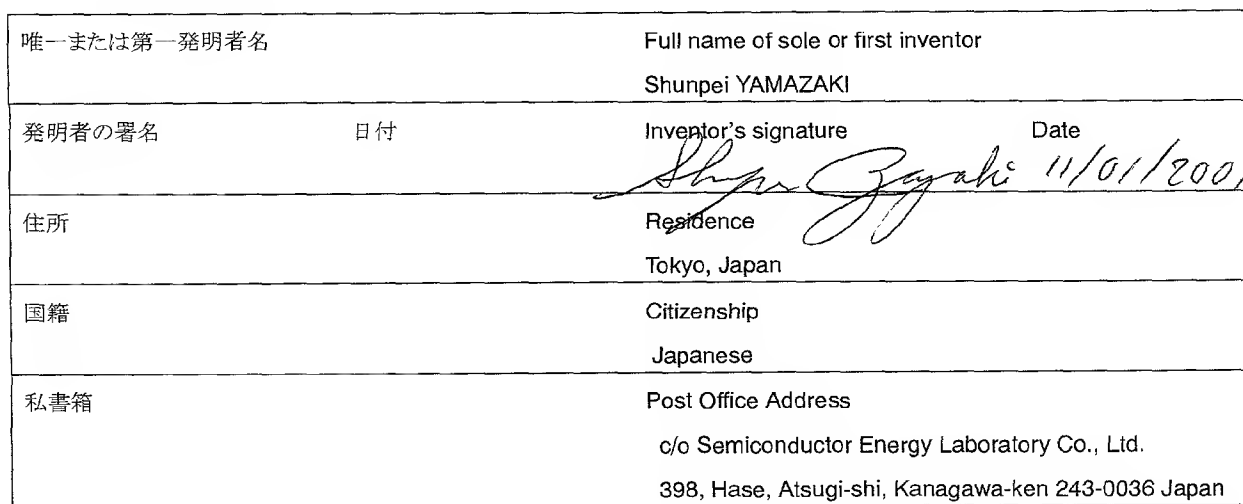 唯一または第一発明者名 Full name of sole or first inventor
Shunpei YAMAZAKI
発明者の署名 日付 Inventor's signature Date
11/01/200
住所 Residence
Tokyo, Japan
国籍 Citizenship
Japanese
私書箱 Post Office Address
c/o Semiconductor Energy Laboratory Co., Ltd.
398, Hase, Atsugi-shi, Kanagawa-ken 243-0036 Japan